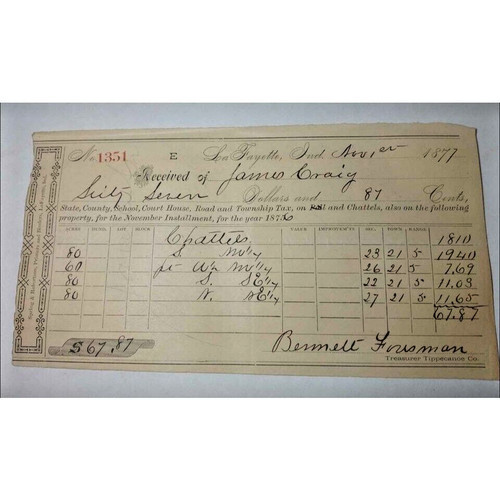 No. 1351 E La Fayette, Ind. Nov 1st 1877
Received of James Craig
Sixty Seven Dollars and 87 Cents,
State, County, School, Court House, Road and Township Tax, on and Chattels, also on the following
property, for the November Installment, for the year 1876
ACRES HUND. LOT. BLOCK VALUE IMPROVEM'TS SEC. TOWN. RANGE
Chattels 1810
80 S. 23 21 5 1940
60 pt W½ 26 21 5 7.69
80 S. 22 21 5 11.03
80 N. 27 21 5 11.65
67.87
$67.87
Bennett Forisman
Treasurer Tippecanoe Co.